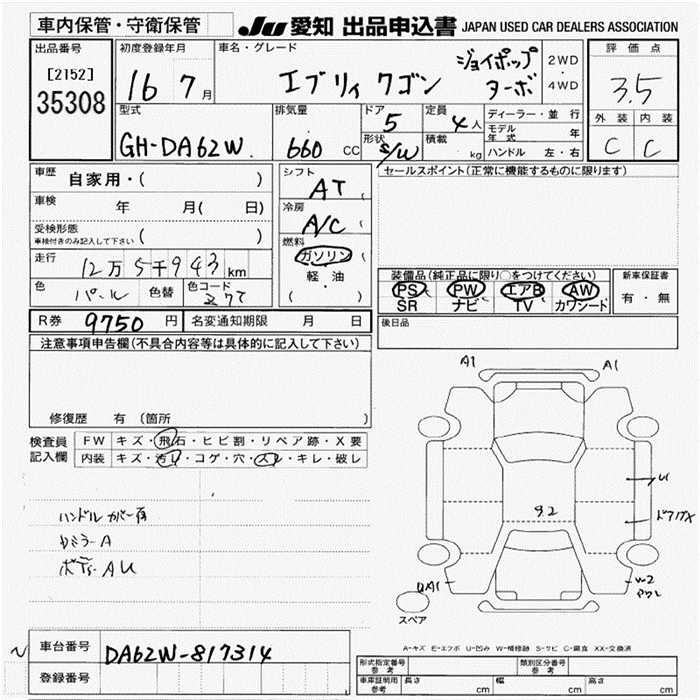 車内保管・守衛保管
JU 愛知 出品申込書 JAPAN USED CAR DEALERS ASSOCIATION
出品番号
[2152]
35308
初度登録年月
16 7月
車名・グレード
エブリィ ワゴン
ジョイポップ
ターボ
2WD
・
4WD
評価点
3.5
外装 内装
C C
型式
GH-DA62W
排気量
660 CC
ドア
5
形状
S/W
定員
4人
積載
kg
ディーラー・並行
モデル年式 年
ハンドル 左・右
車歴
自家用・( )
車検
年 月( 日)
受検形態
車検付きのみ記入して下さい ( )
走行
12万5千943km
色
パール
色替
色コード
シフト
AT
冷房
A/C
燃料
ガソリン
軽・油
( )
セールスポイント(正常に機能するものに限ります)
装備品(純正品に限り○をつけてください)
PS PW エアB AW
SR ナビ TV カワシート
新車保証書
有・無
後日品
R券 9750円 名変通知期限 月 日
注意事項申告欄(不具合内容等は具体的に記入して下さい)
修復歴 有(箇所 )
検査員
記入欄
FW キズ・飛石・ヒビ割・リペア跡・X要
内装 キズ・汚レ・コゲ・穴・スレ・キレ・破レ
ハンドルカバー有
カミラーA
ボディAU
A1 A1
U
9.2
ドアバイX
UA1
W2
スペア
A-キズ E-エクボ U-凹み W-補修跡 S-サビ C-腐食 XX-交換済
車台番号 DA62W-817314
登録番号
形式指定番号
参考
類別区分番号
参考
車庫証明用
参考
長さ cm 幅 cm 高さ cm